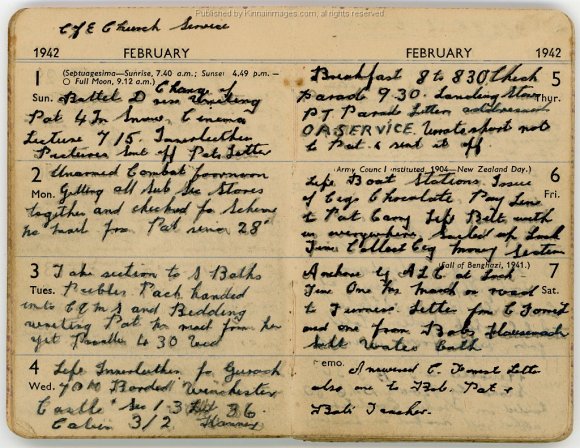 Published by Kinnainmages.com, all rights reserved
C of E Church Service
1942 FEBRUARY
1
Sun.
(Septuagesima—Sunrise, 7.40 a.m.; Sunset 4.49 p.m.—
○ Full Moon, 9.12 a.m.) Change of
Battel D
Pat 4 In Snow Cinema
Lecture 7/5. Innerleithen
Pictures Sent off Pats Letter
2
Mon.
Unarmed Combat forenoon
Getting all Sub Sec Stores
together and checked for Scheme
no mail from Pat since 28
3
Tues.
Take section to S Baths
Peebles Pack handed
into C Q M S and Bedding
writing Pat no mail from her
yet Parade 4 30
4
Wed.
Left Innerleithen for Gurock
Boarded Winchester
Castle Sec 1 3 36.
Cabin 3/2
FEBRUARY 1942
5
Thur.
Breakfast 8 to 830 Check
Parade 9 30. Landing
PT Parade Letter addressed
SERVICE. Wrote short note
to Pat & sent it off
6
Fri.
(Army Council instituted, 1904—New Zealand Day.)
Life Boat Stations Issue
of Cigs Chocolate Pay
to Pat Carry Life Belt with
us everywhere Sailed up Loch
Collect Cig money Section
7
Sat.
(Fall of Benghazi, 1941.)
Anchore at Loch
One No March on road
to Letter for C Forest
and one from Bob.
Salt Water Bath
Memo.
Answered C. Forest Letter
also one to Bob. Pat &
Bob